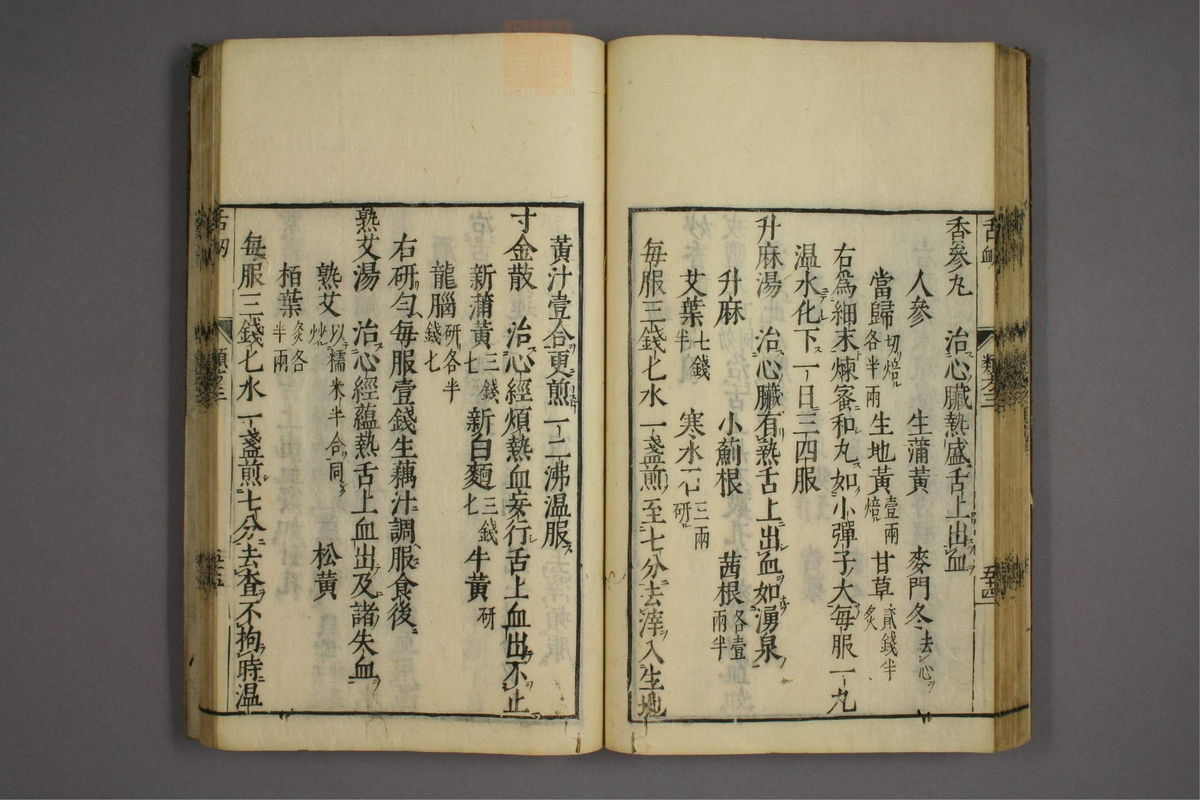 香參丸　治心臟熱盛舌上出血
人參　生蒲黃　麥門冬去心
當歸切焙各半兩　生地黃壹兩焙　甘草貳錢半炙
右爲細末煉蜜和丸如小彈子大每服一丸
溫水化下一日三四服
升麻湯　治心臟有熱舌上出血如湧泉
升麻　小薊根　茜根各壹兩半
艾葉七錢半　寒水石三兩研
每服三錢匕水一盞煎至七分去滓入生地
黃汁壹合更煎一二沸溫服
寸金散　治心經煩熱血妄行舌上血出不止
新蒲黃三錢匕　新白麵三錢匕　牛黃研
龍腦研各半錢匕
右研勻每服壹錢生藕汁調服食後
熟艾湯　治心經蘊熱舌上血出及諸失血
熟艾以糯米半合同炒　松黃
柏葉炙各半兩
每服三錢匕水一盞煎七分去査不拘時溫